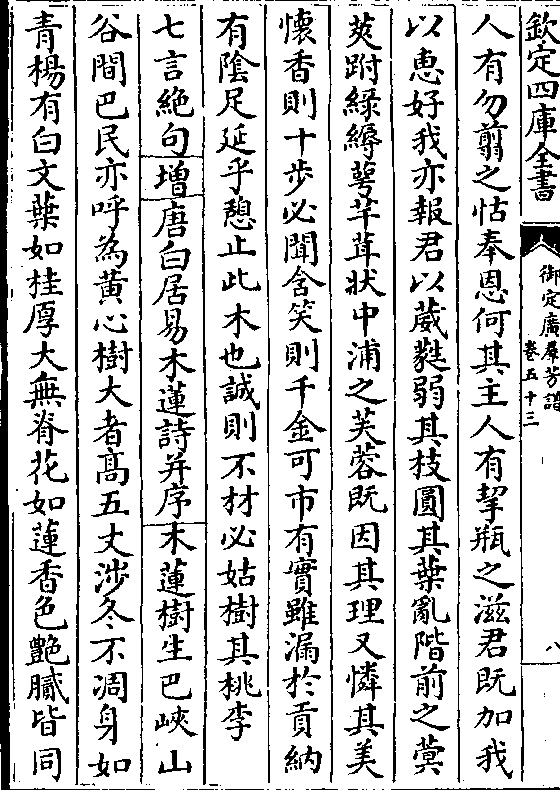 欽定四庫全書
御定廣羣芳譜
卷五十三
八
人有勿翦之怙奉恩何其主人有挈瓶之滋君既加我
以恵好我亦報君以葳蕤弱其枝圓其葉亂階前之蓂
莢跗緑縟萼芊茸狀中浦之芙蓉既因其理又憐其美
懐香則十歩必聞含笑則千金可市有實雖漏於貢納
有陰足延乎憩止此木也誠則不材必姑樹其桃李
七言絶句增唐白居易木蓮詩并序木蓮樹生巴峽山
谷間巴民亦呼為黄心樹大者髙五丈涉冬不凋身如
青楊有白文葉如桂厚大無脊花如蓮香色艷膩皆同